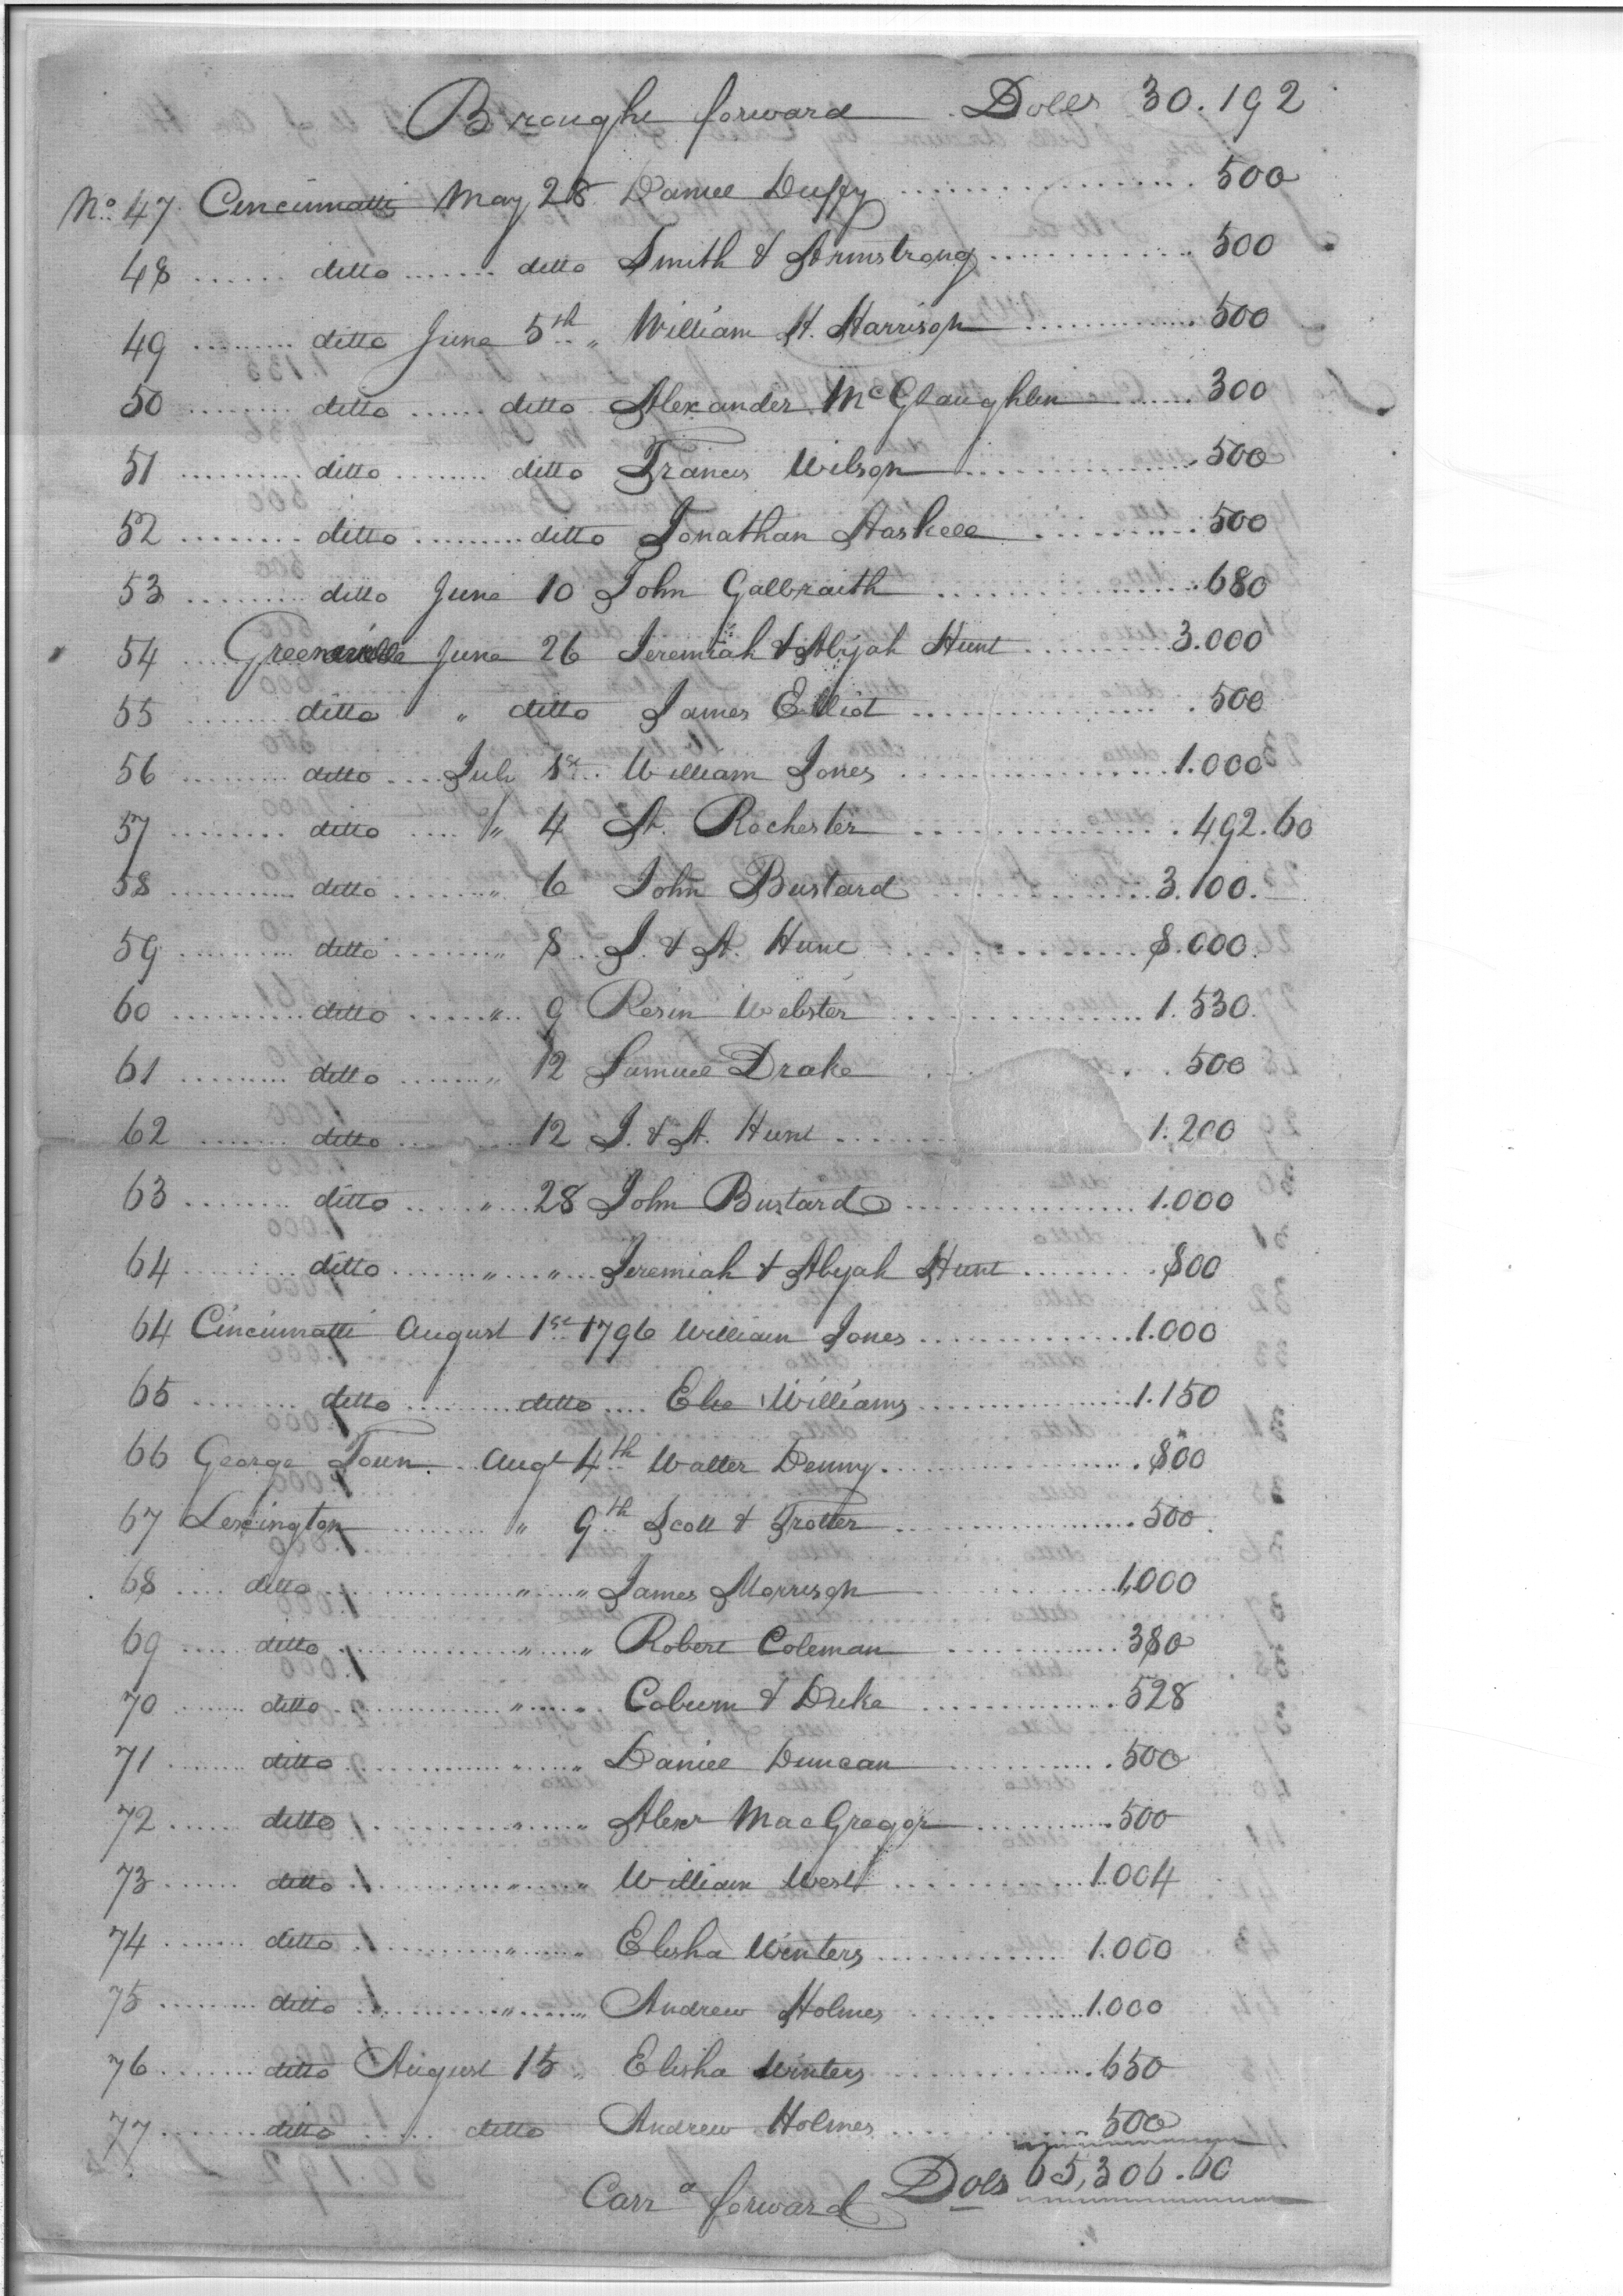 Brought forward Dolls 30.192
No. 47 Cincinnatti May 28 Daniel Duffy 500
48 ditto ditto Smith & Armstrong 500
49 ditto June 5th " William H. Harrison 500
50 ditto ditto Alexander McGlaughlin 300
51 ditto ditto Francis Wilson 500
52 ditto ditto Jonathan Haskell 500
53 ditto June 10 John Galbraith 680
54 Greeneville June 26 Jeremiah & Abijah Hunt 3.000
55 ditto " ditto James Elliot 500
56 ditto July 1st William Jones 1.000
57 ditto " 4 A. Rochester 492.60
58 ditto " 6 John Bustard 3.100.
59 ditto " 8 J. & A. Hunt 8.000
60 ditto " 9 Resin Webster 1.530.
61 ditto " 12 Samuel Drake 500
62 ditto 12 J. & A. Hunt 1.200
63 ditto " 28 John Bustard 1.000
64 ditto " " Jeremiah & Abijah Hunt 800
64 Cincinnatti August 1st 1796 William Jones 1.000
65 ditto ditto Elie Williams 1.150
66 George Town Augt 4th Walter Denny 800
67 Lexington " 9th Scott & Trotter 500
68 ditto " " James Morrison 1,000
69 ditto " " Robert Coleman 380
70 ditto " Coburn & Duke 528
71 ditto " " Daniel Duncan 500
72 ditto " " Alexr MacGregor 500
73 ditto " " William West 1.004
74 ditto " " Elisha Winters 1.000
75 ditto " " Andrew Holmes 1.000
76 ditto August 15 Elisha Winters 650
77 ditto ditto Andrew Holmes 500
Carrd forward Dols 65,306.60